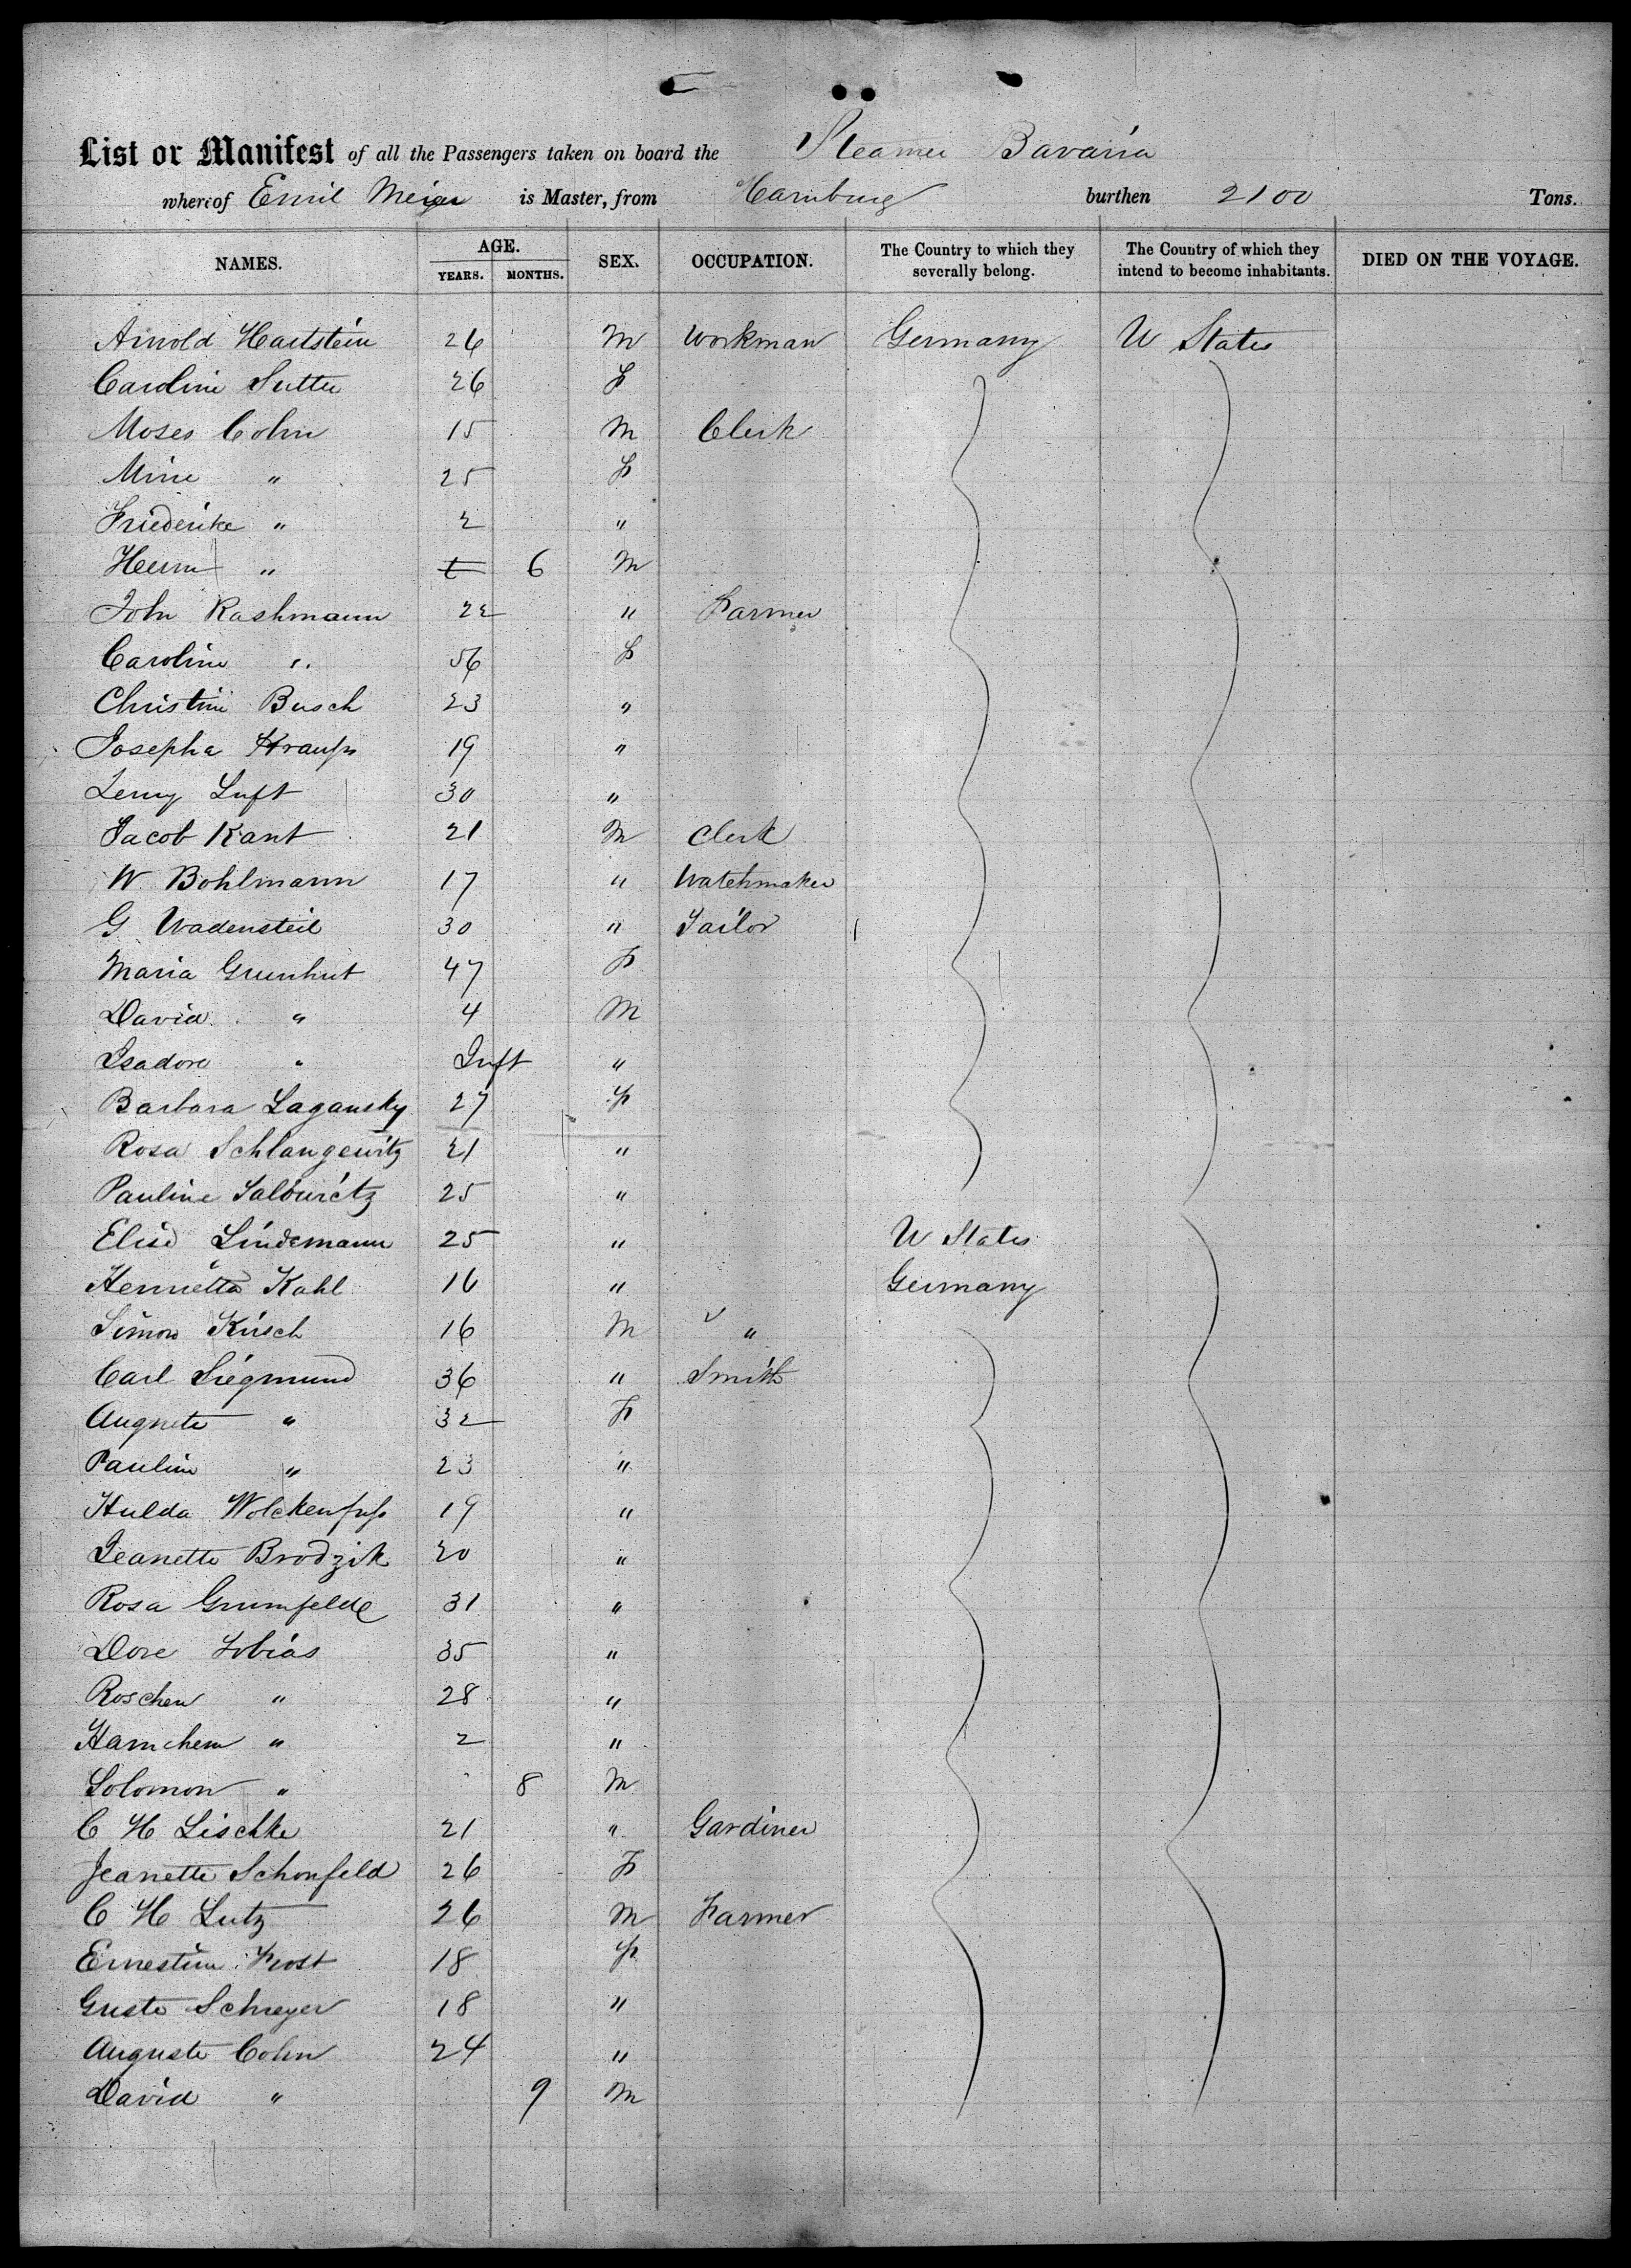 List or Manifest of all the Passengers taken on board the Steamer Bavaria
whereof Emil Meier is Master, from Hamburg burthen 2100 Tons.
NAMES. AGE. YEARS. MONTHS. SEX. OCCUPATION. The Country to which they severally belong. The Country of which they intend to become inhabitants. DIED ON THE VOYAGE.
Arnold Hartstein 26 M Workman Germany U States
Caroline Sutter 26 F
Moses Cohn 15 M Clerk
Mine " 25 F
Friederike " 2 "
Herm " 6 M
John Rashmann 22 " Farmer
Caroline " 56 F
Christine Busch 23 "
Josepha Krauss 19 "
Luft 30 "
Jacob Kant 21 M Clerk
W Bohlmann 17 " Watchmaker
G Wadensteil 30 " Tailor
Maria Grunhut 47 F
David " 4 M
Isadore " Inft "
Barbara Lagansky 27 F
Rosa Schlangewitz 21 "
Pauline Salowietz 25 "
Elise Lindemann 25 " U States
Henrietta Kahl 16 " Germany
Simon Kirsch 16 M "
Carl Siegmund 36 " Smith
Auguste " 32 F
Pauline " 23 "
Hulda Wolckenfuss 19 "
Jeanette Brodzik 20 "
Rosa Grumfelde 31 "
Dore Tobias 35 "
Roschen " 28 "
Hamchen " 2 "
Solomon " 8 M
C H Lischke 21 " Gardiner
Jeanette Schonfeld 26 F
C H Lutz 26 M Farmer
Ernestine Frost 18 F
Guste Schreyer 18 "
Auguste Cohn 24 "
David " 9 M